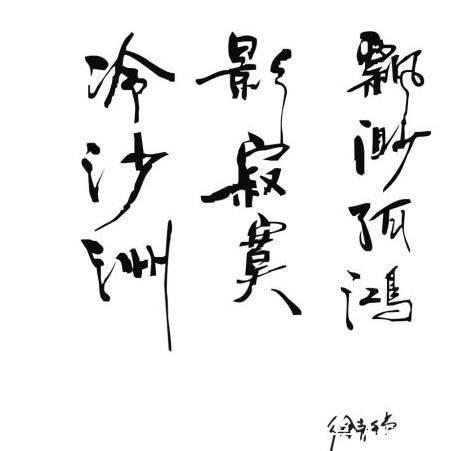 飘渺孤鴻
影寂寞
冷沙洲